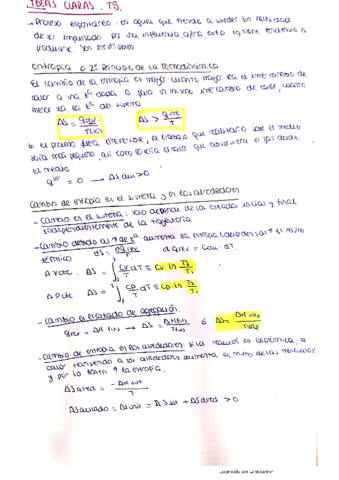 IDEAS CLARAS. T5.
- Proceso espontáneo: es aquel que tiende a suceder sin necesidad
de ser impulsado por una influencia, esto exige tendencia a
producirse. Son irreversibles
Entropía o 2º Principio de la Termodinámica
El cambio de la entropía es mayor cuanto mayor sea el intercambio de
calor a una tª dada o para un mismo intercambio de calor, cuanto
menor sea la tª del sistema
ΔS = qrev / T(K) ΔS > qirre / T
Si el proceso fuera irreversible, el trabajo que realizaría sobre el medio
sería más pequeño, así como lo sería el calor que absorbiera el gas desde
el medio
qirr = 0 → ΔSau > 0
Cambio de entropía en el sistema y en los alrededores
- Cambio en el sistema: solo depende de los estados inicial y final
independientemente de la trayectoria
- Cambio debido al ↑ de tª aumenta la entropía
térmico dS = dqrev / T dqrev = Cdu · dT.
A Vcte. ΔS = ∫ Cv/T dT ≡ Cv ln T2/T1
A Pcte ΔS = ∫ Cp/T dT ≡ Cp ln T2/T1
- Cambio en el estado de agregación
qrev = ΔH fus → ΔS = ΔH fus / T fus ó ΔS = ΔH vap / T vap
- Cambio de entropía en los alrededores: Si la reacción es exotérmica, el
calor transferido a los alrededores aumenta el mvto de las moléculas
y por lo tanto ↑ la entropía.
ΔS alred = - ΔH sist / T
ΔS aislado = ΔS univ = ΔS sist + ΔS alred > 0
Digitalizado con CamScanner